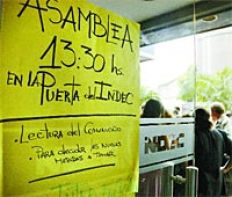 ASAMBLEA
13:30 hs.
EN LA
PUERTA del INDEC
. Lectura del Comunicado
. PARA decidir las nuevas
medidas a tomar
INDEC